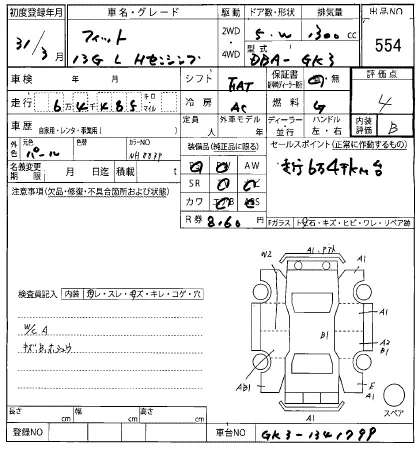 初度登録年月 車名・グレード 駆動 ドア数・形状 排気量 出品NO
31/3月 フィット 2WD 5.W 1300cc 554
13G L Hセンシング 4WD 型式 DBA-GK3
車検 年 月 シフト FAT 保証書 有・無 評価点
走行 6万4千485 キロ マイル 冷房 AC 燃料 G 4
車歴 自家用・レンタ・事業用( ) 定員 人 外車モデル 年 ディーラー 並行 ハンドル 左・右 内装評価 B
外色 元色 パール 色替 カラーNO NH883P
装備品(純正品に限る) セールスポイント(正常に作動するもの)
AW
SR
カワ
走行6万4千km台
名義変更期限 月 日迄 積載 t
R券 8.60円
注意事項(欠品・修復・不具合箇所および状態)
Fガラス トビ石・キズ・ヒビ・ワレ・リペア跡
検査員記入 内装 スレ・キズ・キレ・コゲ・穴
W/C A
W2
A1
A1
B1
A1
A2
B1
AB1
E
A1
A1
スペア
長さ cm 幅 cm 高さ cm
登録NO 車台NO GK3-1341799